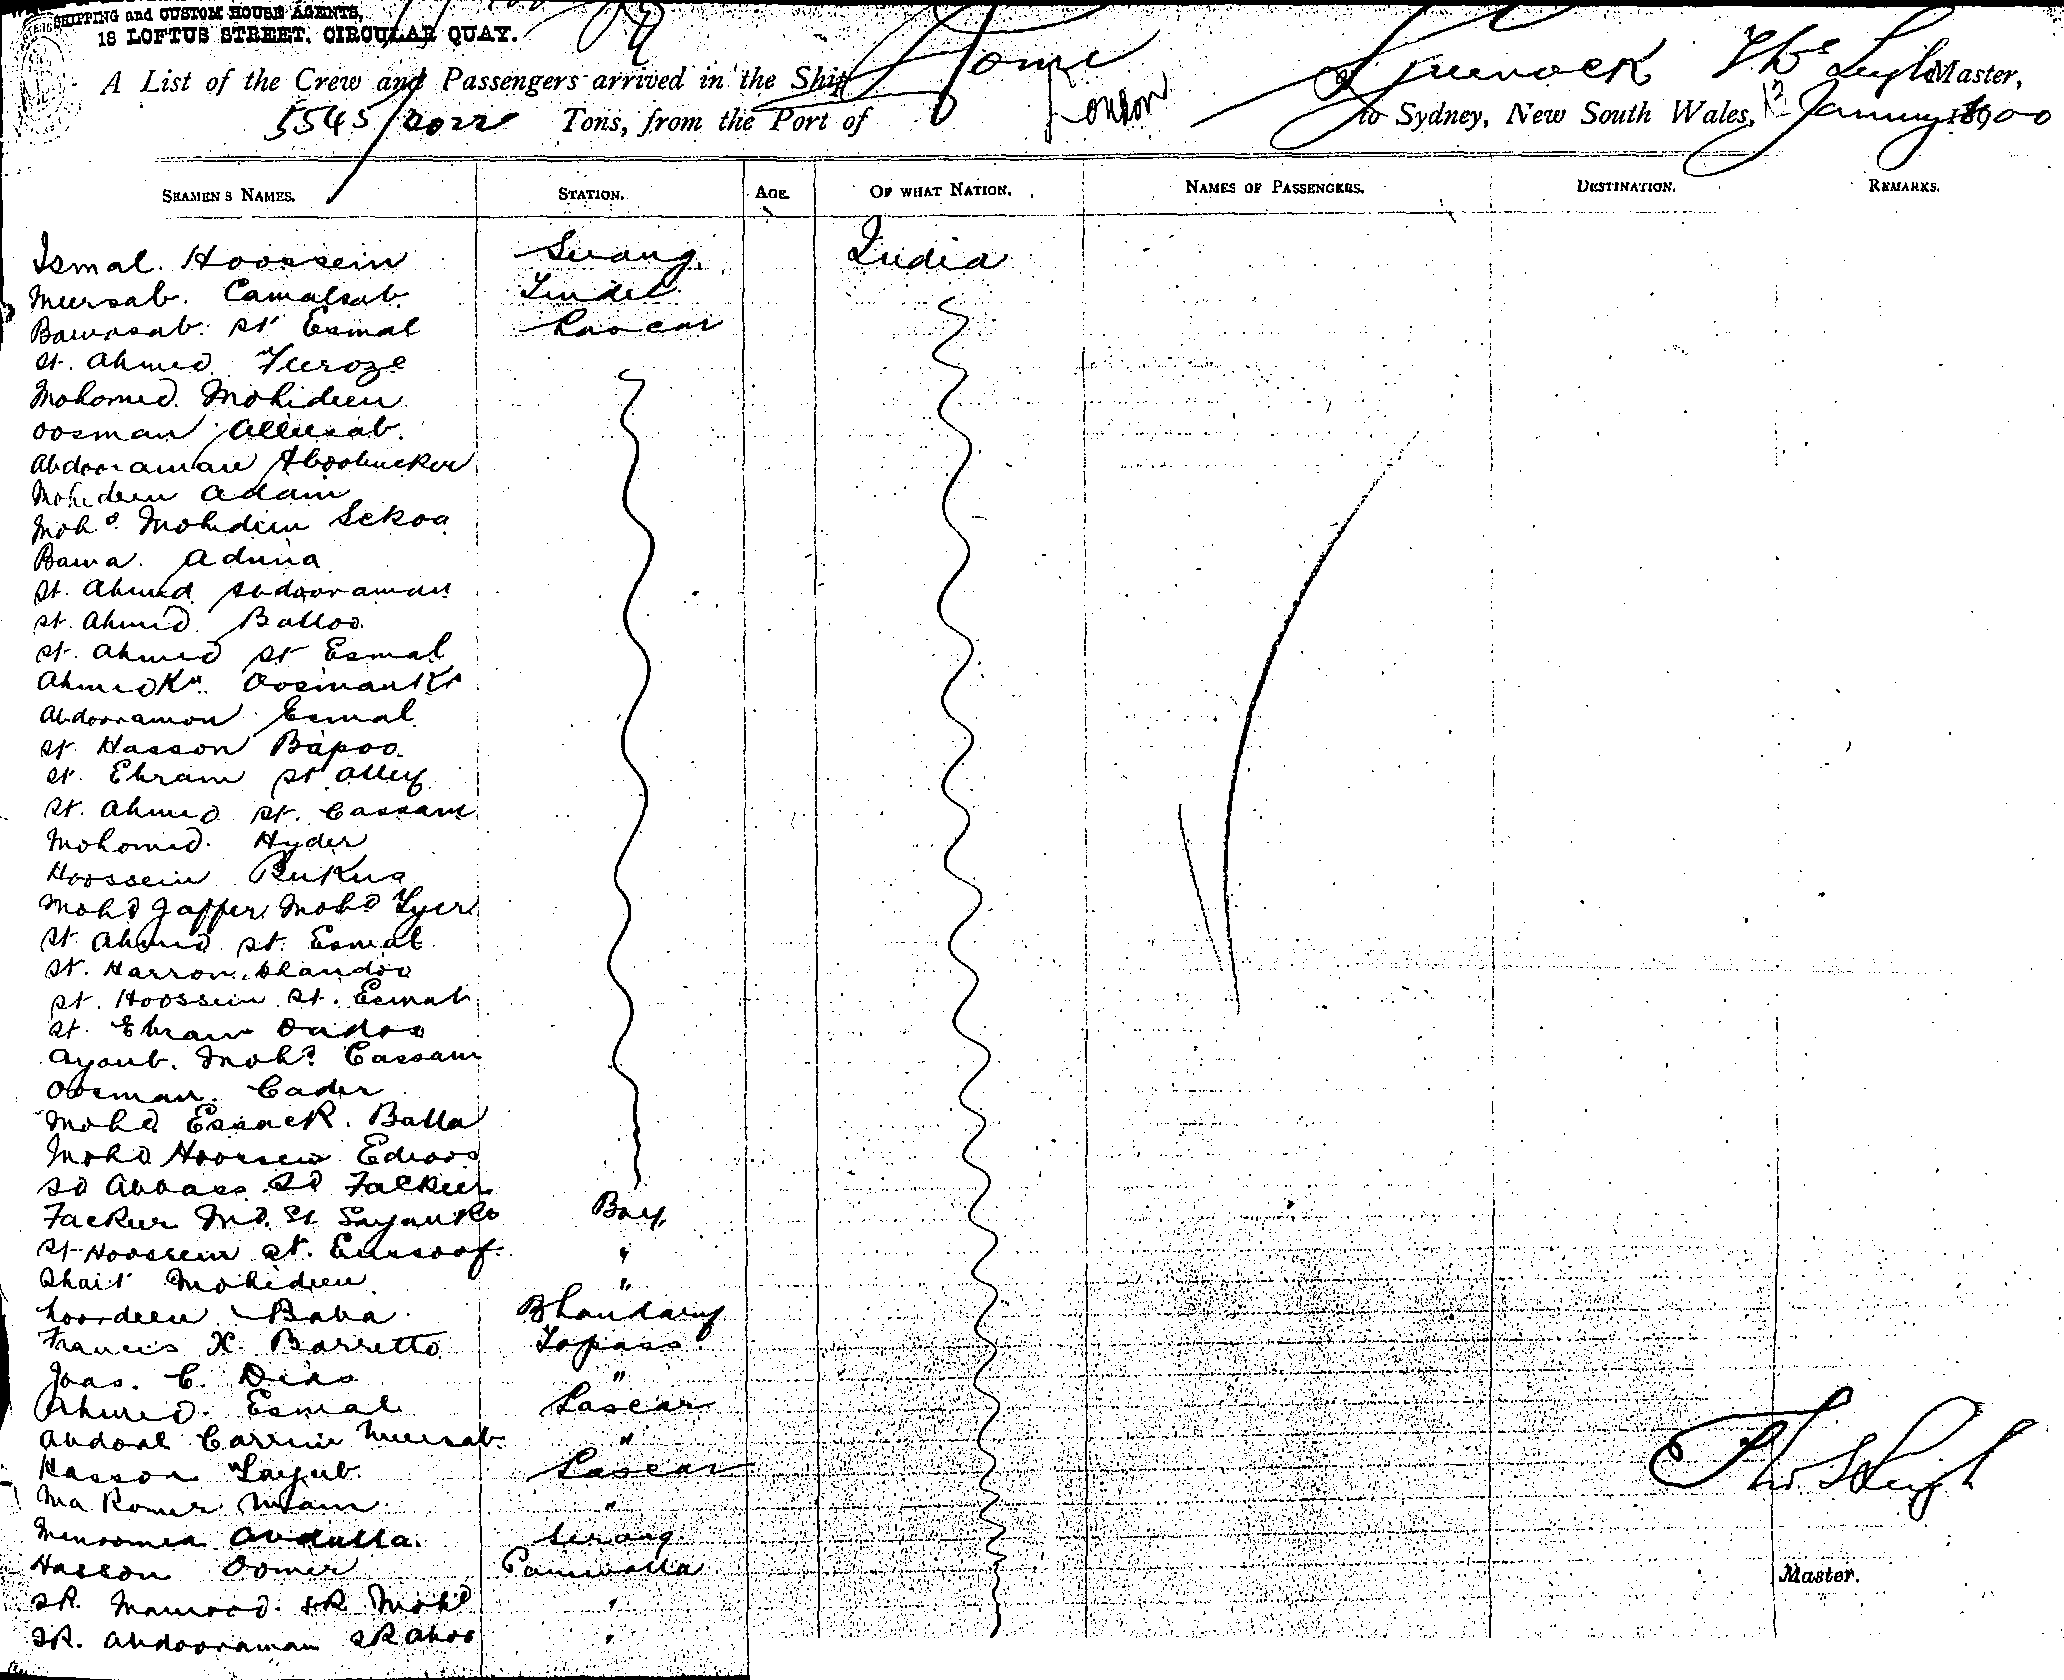 SHIPPING and CUSTOM HOUSE AGENTS,
18 LOFTUS STREET, CIRCULAR QUAY.
A List of the Crew and Passengers arrived in the Ship Rome of Greenock Thos Leigh Master,
5545 Tons, from the Port of London to Sydney, New South Wales, 12 January 1900
SEAMEN'S NAMES. STATION. AGE. OF WHAT NATION. NAMES OF PASSENGERS. DESTINATION. REMARKS.
Ismal. Hoossein Serang India
Meersab. Camalsab. Tindel
Bawasab. St Esmal Lascar
St. Ahmed Feeroze
Mohomed. Mohideen
Oosman Alleesab.
Abdooraman Aboobucker
Mohideen Adam
Mohd Mohideen Sekoa
Bawa. Aduna
St. Ahmed Abdooraman
St. Ahmed Balloo
St. Ahmed St Esmal
Ahmed Kn. Oosman Kn
Abdooramon Esmal.
St Hasson Bapoo.
St. Ebram St Alley
St. Ahmed St. Cassam
Mohomed. Hyder
Hoossein
Mohd Jaffer Mohd
St. Ahmed St. Esmal.
St. Harron
St. Hoossein St. Esmal.
St. Ebram Dadoo
Ayoub. Mohd Cassam
Oosman. Cader
Mohd Essack. Balla
Mohd Hoossein Edroos
Sd Abbass Sd Fackeer
Fackeer Md. St Boy
St Hoossein St. Eussoof "
Shaik Mohideen "
Noordeen Baba Bhandary
Francis X. Barretto Topass
Joas. C. Dias "
Ahmed. Esmal Lascar
Abdool Carrim Meersab. "
Hasson Tayub. Lascar
Miam "
Abdulla. Serang
Hasson Oomer Paniwalla
SK. Mamood. SK Mohd "
SK. Abdooraman SK Aboo "
Thos Leigh
Master.